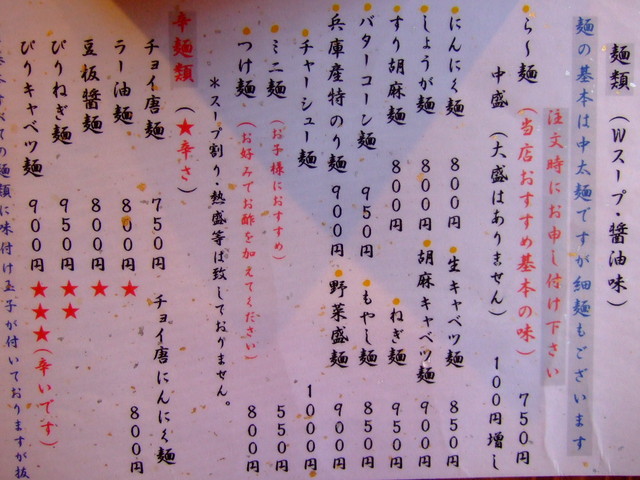 麺類（Wスープ・醤油味）
麺の基本は中太麺ですが細麺もございます
注文時にお申し付け下さい
らー麺（当店おすすめ基本の味） 750円
中盛（大盛はありません） 100円増し
にんにく麺 800円
生キャベツ麺 850円
しょうが麺 800円
胡麻キャベツ麺 900円
すり胡麻麺 800円
ねぎ麺 950円
バターコーン麺 950円
もやし麺 850円
兵庫産特のり麺 900円
野菜盛麺 900円
チャーシュー麺 1000円
ミニ麺（お子様におすすめ） 550円
つけ麺（お好みでお酢を加えてください） 800円
＊スープ割り・熱盛等は致しておりません。
辛麺類（★辛さ）
チョイ唐麺 750円
チョイ唐にんにく麺 800円
ラー油麺 800円★
豆板醤麺 800円★
ぴりねぎ麺 950円★★
ぴりキャベツ麺 900円★★★（辛いです）
すべての麺類に味付け玉子が付いておりますが抜